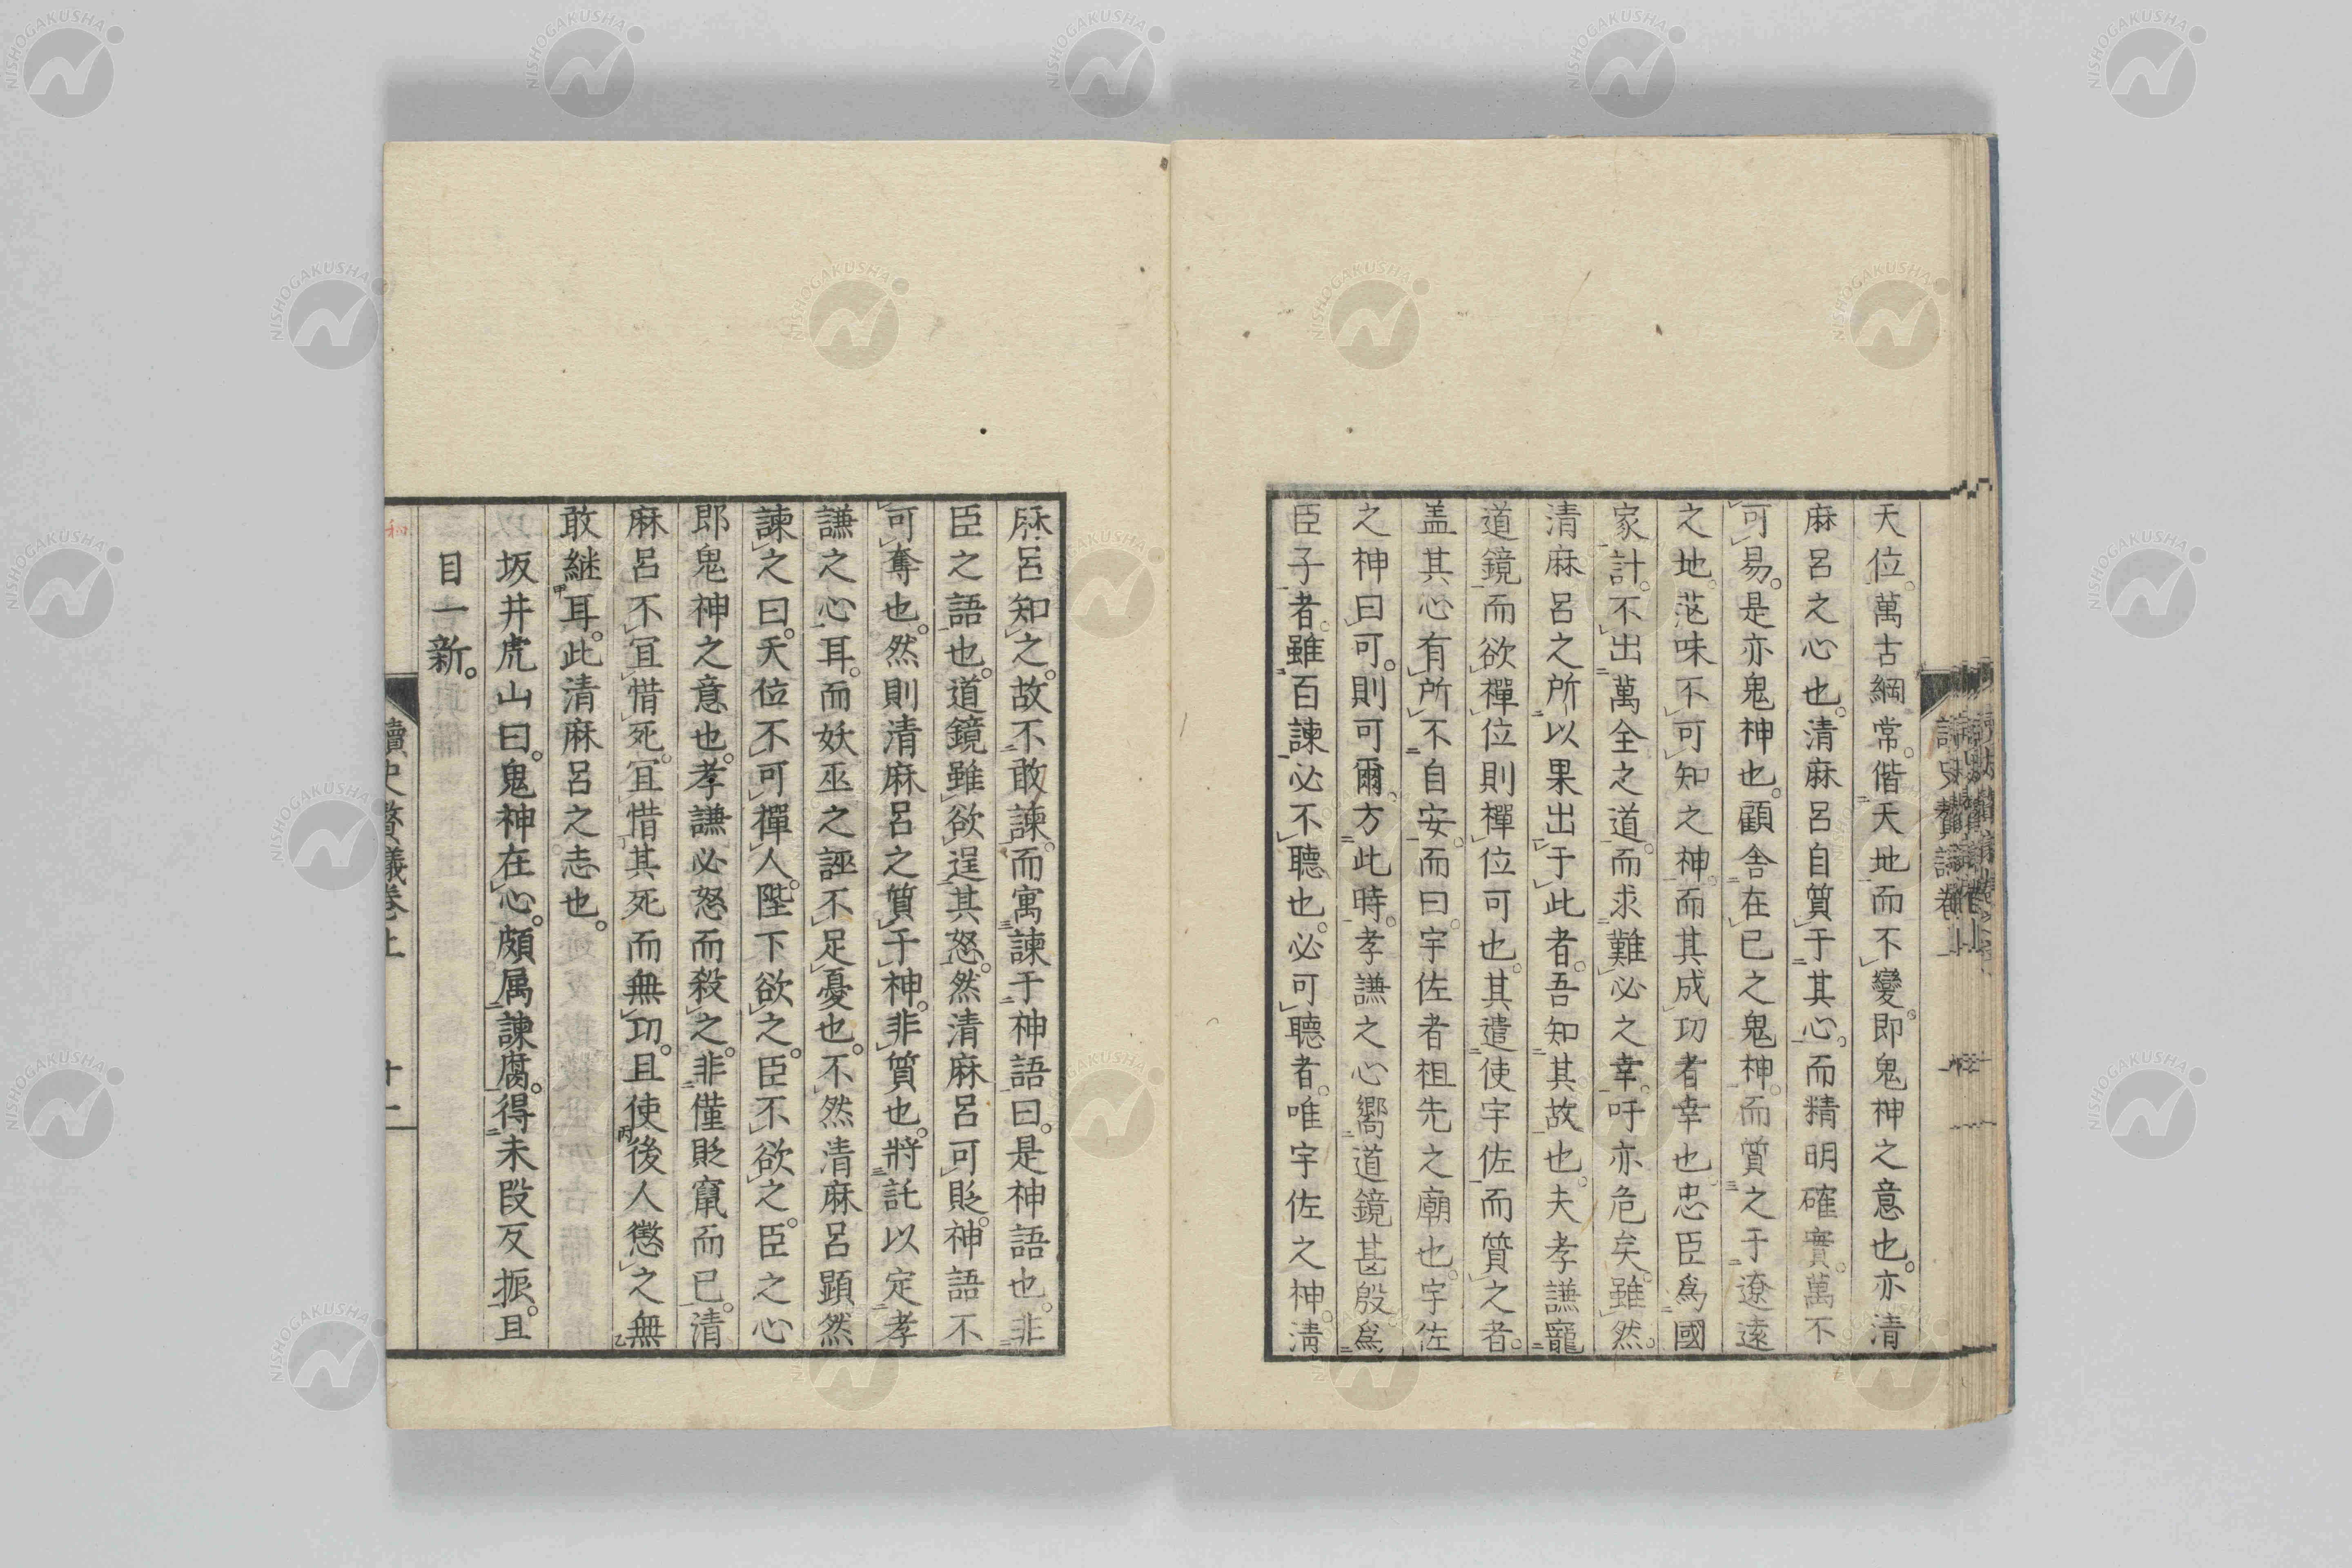 天位。萬古綱常。偕天地而不變。即鬼神之意也。亦清
麻呂之心也。清麻呂自質于其心。而精明確實。萬不
可易。是亦鬼神也。顧舎在已之鬼神。而質之于遼遠
之地。茫味不可知之神。而其成功者幸也。忠臣爲國
家計。不出萬全之道。而求難必之幸。吁亦危矣。雖然。
清麻呂之所以果出于此者。吾知其故也。夫孝謙寵
道鏡。而欲禪位則禪位可也。其遣使宇佐而質之者。
盖其心有所不自安。而曰。宇佐者祖先之廟也。宇佐
之神曰可。則可爾。方此時。孝謙之心嚮道鏡甚殷。爲
臣子者。雖百諫必不聽也。必可聽者。唯宇佐之神。清
麻呂知之。故不敢諫。而寓諫于神語曰。是神語也。非
臣之語也。道鏡雖欲逞其怒。然清麻呂可貶。神語不
可奪也。然則清麻呂之質于神。非質也。將託以定孝
謙之心耳。而妖巫之誣不足憂也。不然清麻呂顕然
諫之曰。天位不可禪人。陛下欲之。臣不欲之。臣之心
即鬼神之意也。孝謙必怒而殺之。非僅貶竄而已。清
麻呂不宜惜死。宜惜其死而無功。且使後人懲之無
敢継耳。此清麻呂之志也。
坂井虎山曰。鬼神在心。頗属諫腐。得未段反振。且
目一新。
讀史贅議卷上
十二
讀史贅議卷上
NISHOGAKUSHA